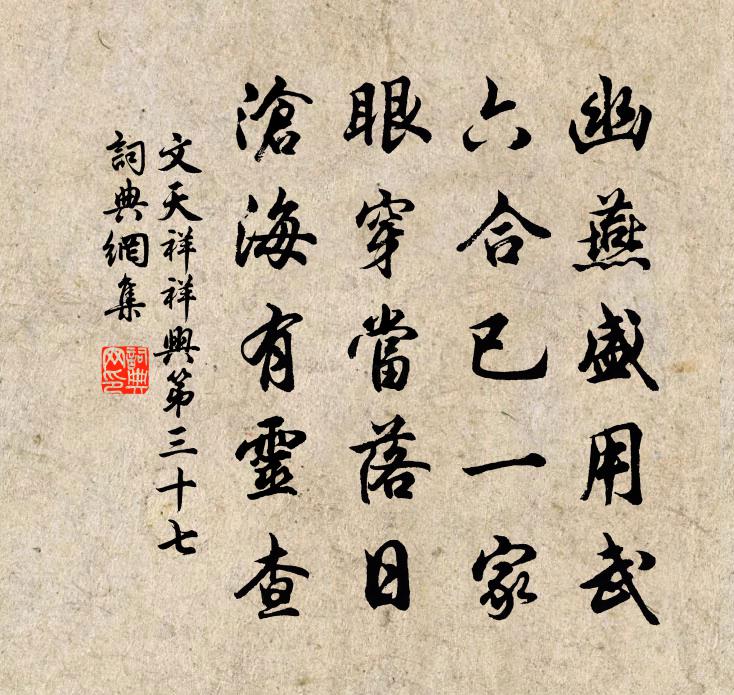 幽燕盛用武
六合已一家
眼穿當落日
滄海有靈查
文天祥祥興第三十七
詞典網集
詞典
网印